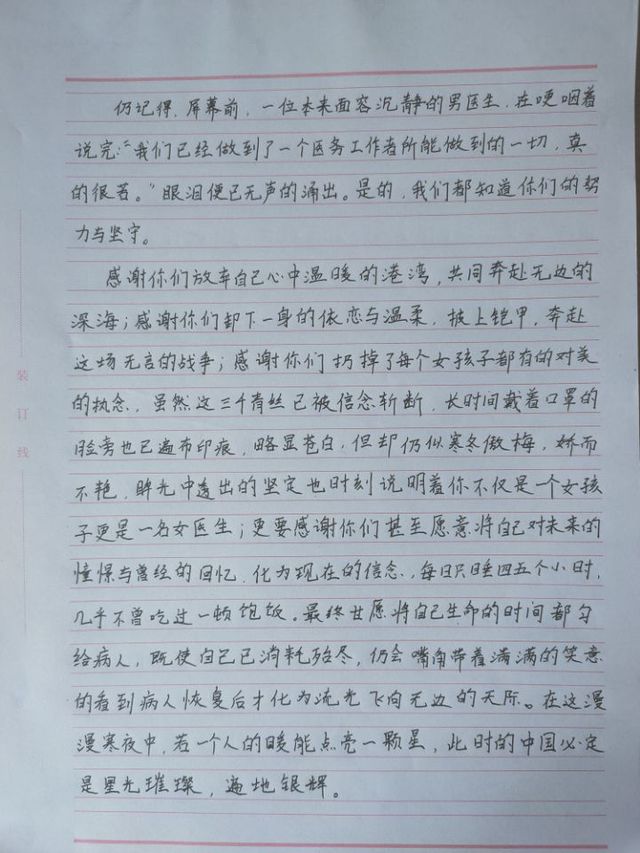 仍记得，屏幕前，一位本来面容沉静的男医生，在哽咽着
说完："我们已经做到了一个医务工作者所能做到的一切，真
的很苦。"眼泪便已无声的涌出。是的，我们都知道你们的努
力与坚守。
感谢你们放弃自己心中温暖的港湾，共同奔赴无边的
深海；感谢你们卸下一身的依恋与温柔，披上铠甲，奔赴
这场无言的战争；感谢你们扔掉了每个女孩子都有的对美
的执念，虽然这三千青丝已被信念斩断，长时间戴着口罩的
脸旁也已遍布印痕，略显苍白，但却仍似寒冬傲梅，娇而
不艳，眸光中透出的坚定也时刻说明着你不仅是一个女孩
子更是一名女医生；更要感谢你们甚至愿意将自己对未来的
憧憬与曾经的回忆，化为现在的信念，每日只睡四五个小时，
几乎不曾吃过一顿饱饭。最终甘愿将自己生命的时间都匀
给病人，既使自己已消耗殆尽，仍会嘴角带着满满的笑意
的看到病人恢复后才化为流光飞向无边的天际。在这漫
漫寒夜中，若一个人的暖能点亮一颗星，此时的中国必定
是星光璀璨，遍地银辉。
装订线